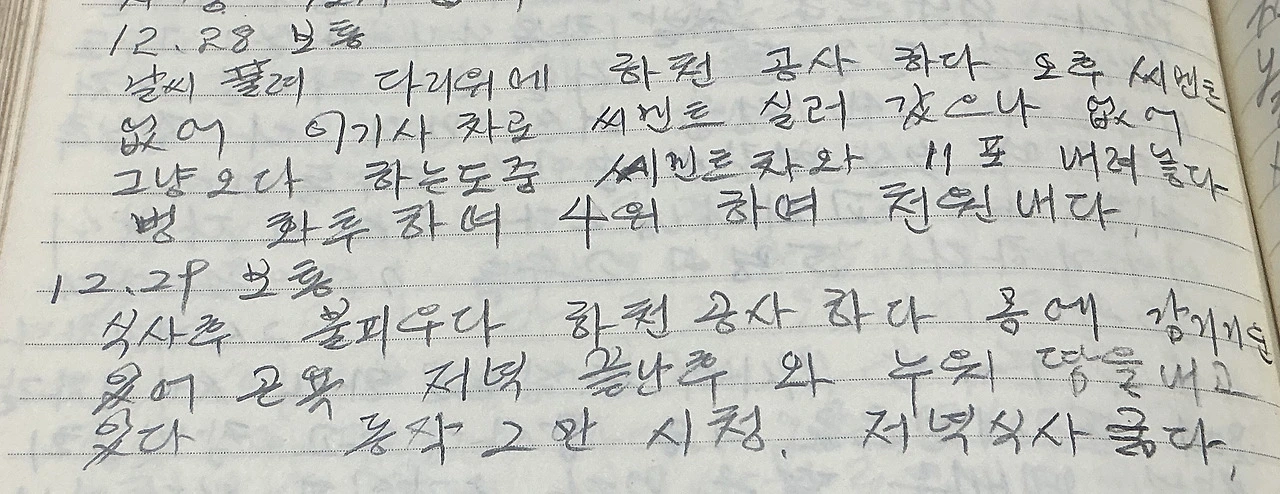 12.28 보통
날씨 풀려 다리위에 하천 공사 하다 오후 씨멘트
없어 이기사 차로 씨멘트 실러 갔으나 없어
그냥오다 하는도중 씨멘트차와 11포 내려놓다
병 화투하며 4위 하여 천원내다.
12.29 보통
식사후 불피우다 하천공사 하다 몸에 감기기운
있어 곤욕 저녁 끝난후 와 누워 땀을내고
있다 동작그만 시청. 저녁식사 굶다.